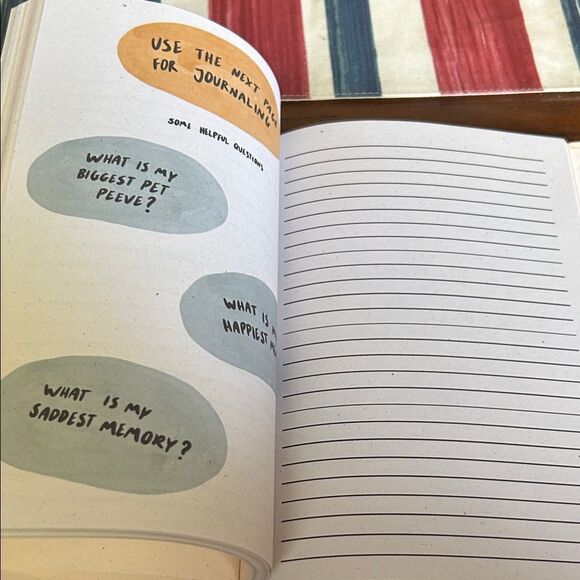 USE THE NEXT PAGE
FOR JOURNALING
SOME HELPFUL QUESTIONS
WHAT IS MY
BIGGEST PET
PEEVE?
WHAT IS
HAPPIEST
WHAT IS MY
SADDEST MEMORY?